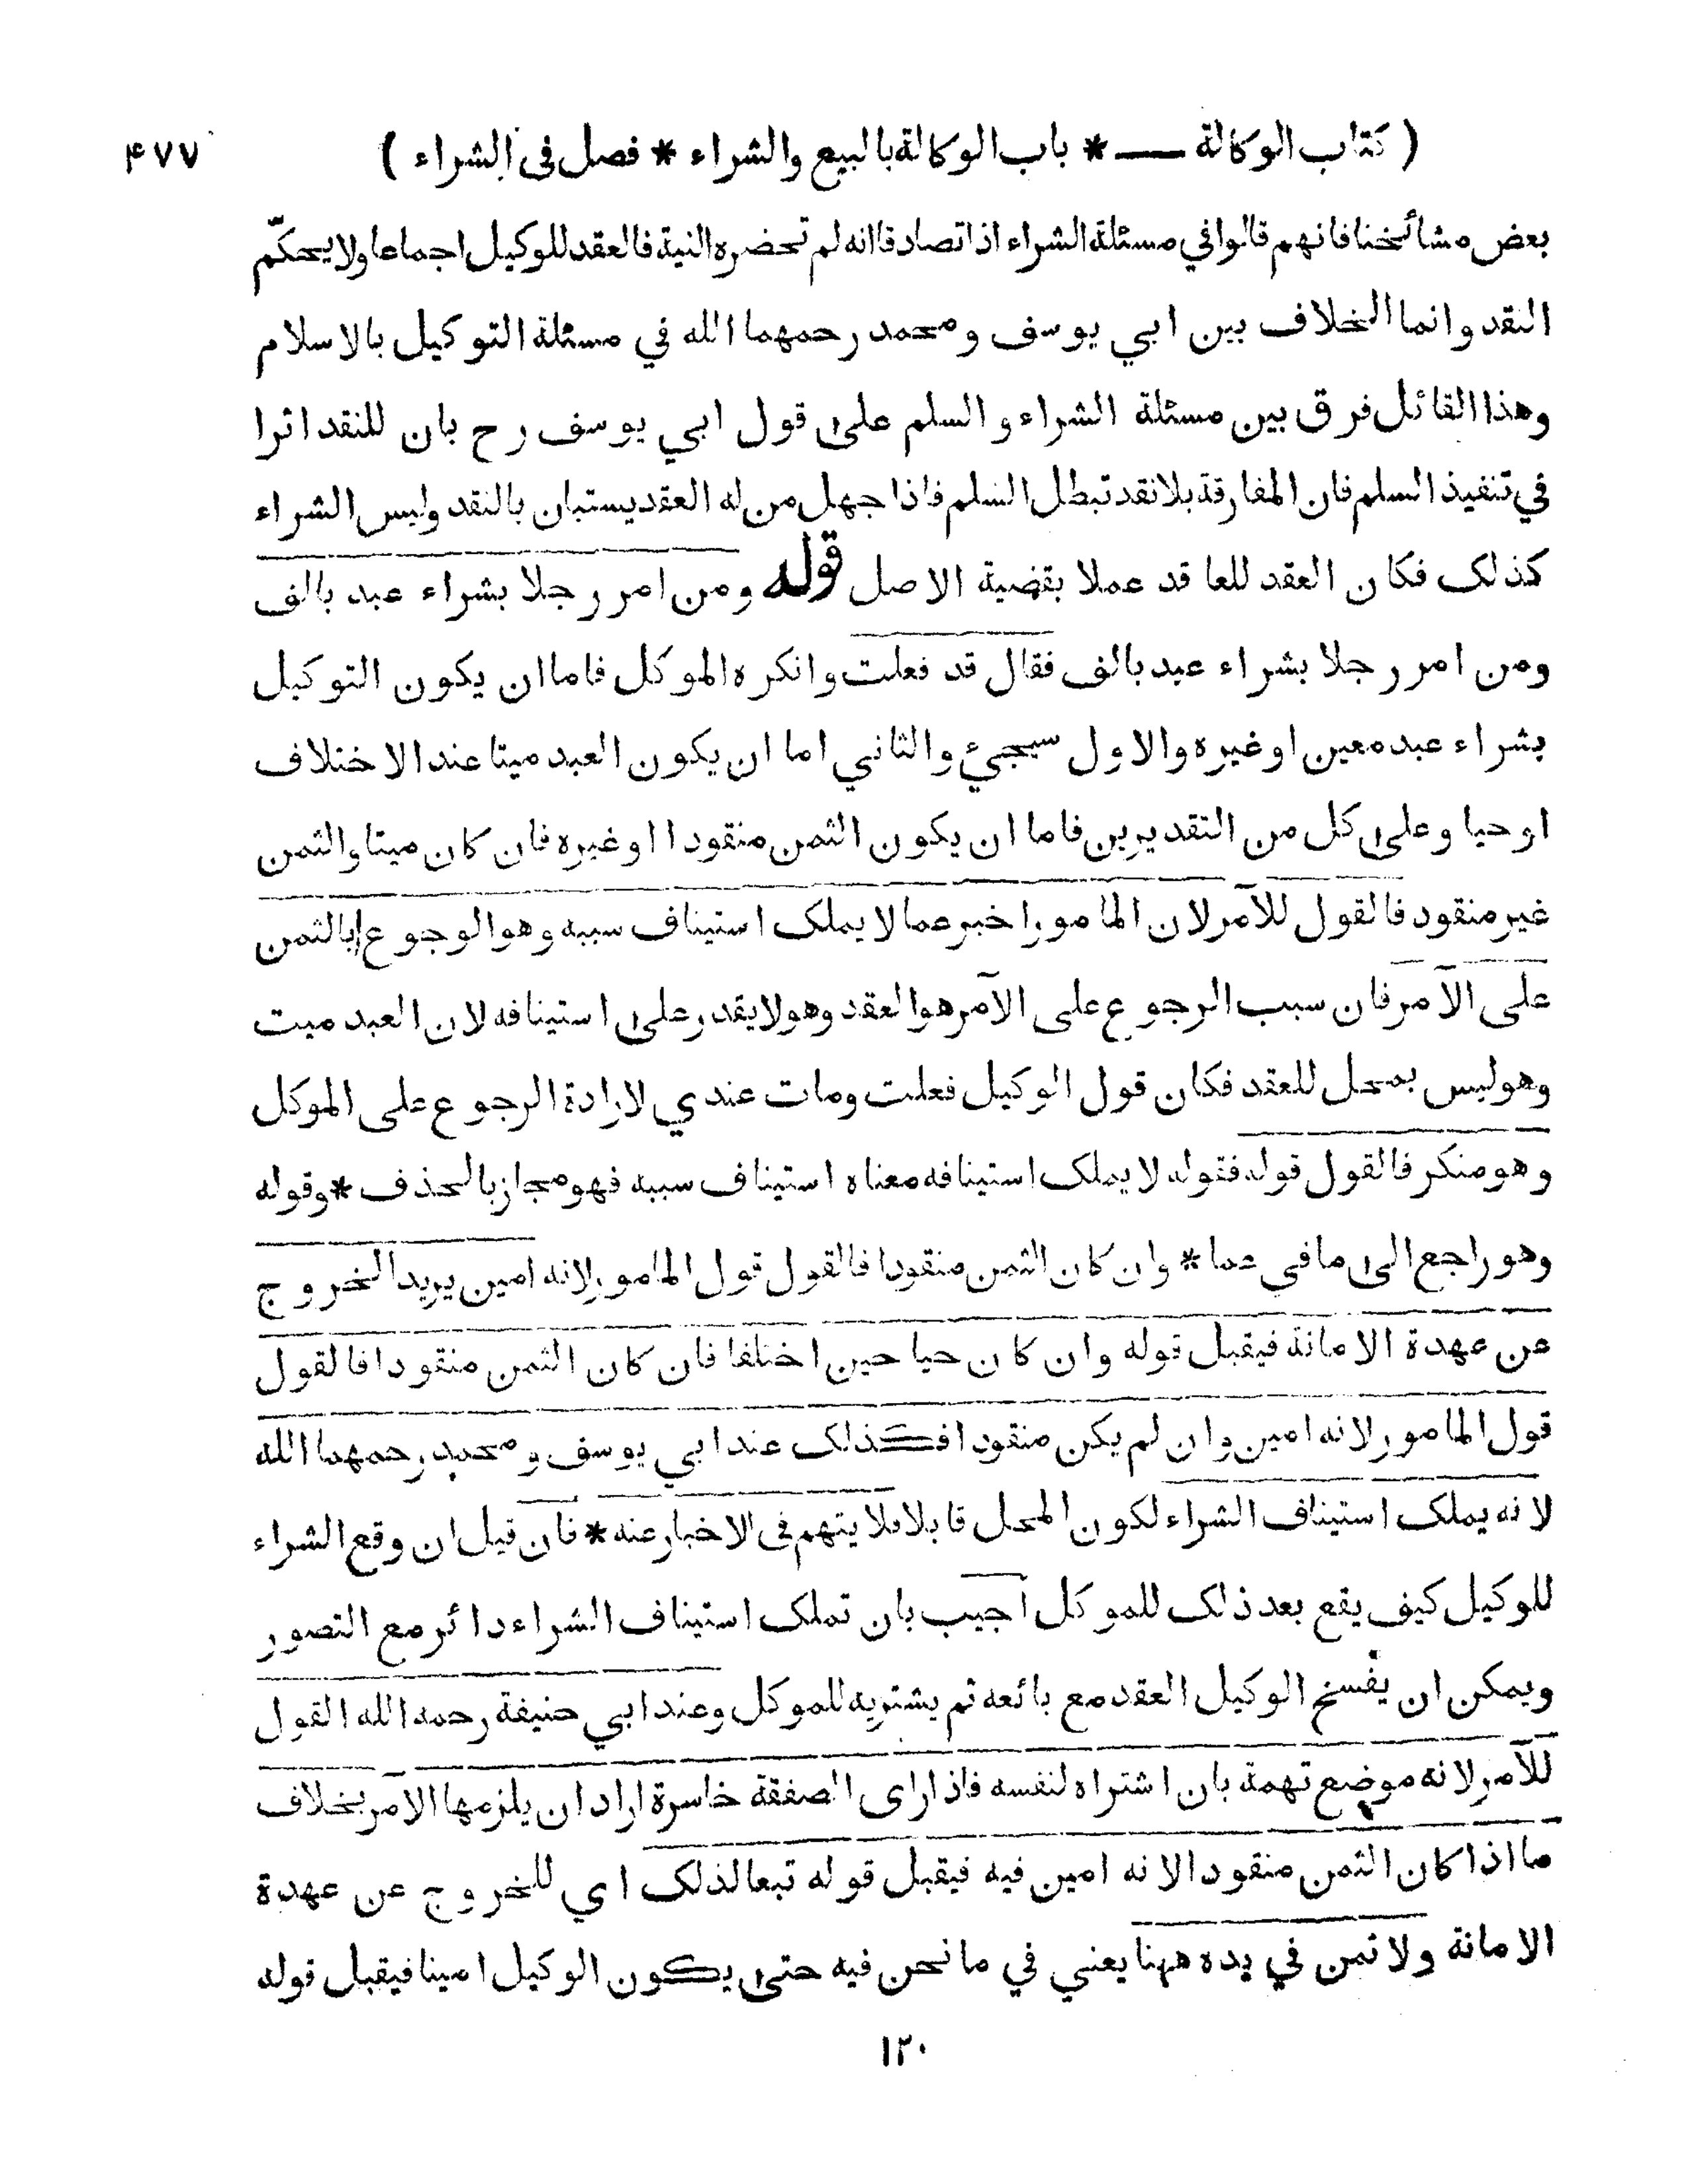 ( كتاب الوكالة —— * باب الوكالة بالبيع والشراء * فصل فى الشراء ) ۴۷۷
بعض مشائخنا فانهم قالوا في مسئلة الشراء اذا تصادقا انه لم تحضره النية فالعقد للوكيل اجماعا ولا يحكّم
النقد وانما الخلاف بين ابي يوسف ومحمد رحمهما الله في مسئلة التوكيل بالاسلام
وهذا القائل فرق بين مسئلة الشراء والسلم على قول ابي يوسف رح بان للنقد اثرا
في تنفيذ السلم فان المفارقة بلا نقد تبطل السلم فاذا جهل من له العقد يستبان بالنقد وليس الشراء
كذلك فكان العقد للعاقد عملا بقضية الاصل قوله ومن امر رجلا بشراء عبد بالف
ومن امر رجلا بشراء عبد بالف فقال قد فعلت وانكره الموكل فاما ان يكون التوكيل
بشراء عبد معين او غيره والاول سيجيئ والثاني اما ان يكون العبد ميتا عند الاختلاف
او حيا وعلى كل من التقديرين فاما ان يكون الثمن منقودا او غيره فان كان ميتا والثمن
غير منقود فالقول للآمر لان المامور اخبر عما لا يملك استيناف سببه وهو الوجوع بالثمن
على الآمر فان سبب الرجوع على الآمر هو العقد وهو لا يقدر على استينافه لان العبد ميت
وهو ليس بمحل للعقد فكان قول الوكيل فعلت ومات عندي لارادة الرجوع على الموكل
وهو منكر فالقول قوله فقوله لا يملك استينافه معناه استيناف سببه فهو مجاز بالحذف * وقوله
وهو راجع الى ما فى عما * وان كان الثمن منقودا فالقول قول المامور لانه امين يريد الخروج
عن عهدة الامانة فيقبل قوله وان كان حيا حين اختلفا فان كان الثمن منقودا فالقول
قول المامور لانه امين وان لم يكن منقودا فكذلك عند ابي يوسف ومحمد رحمهما الله
لانه يملك استيناف الشراء لكون المحل قابلا فلا يتهم فى الاخبار عنه * فان قيل ان وقع الشراء
للوكيل كيف يقع بعد ذلك للموكل اجيب بان تملك استيناف الشراء دائر مع التصور
ويمكن ان يفسخ الوكيل العقد مع بائعه ثم يشتريه للموكل وعند ابي حنيفة رحمه الله القول
للآمر لانه موضع تهمة بان اشتراه لنفسه فاذا راى الصفقة خاسرة اراد ان يلزمها الآمر بخلاف
ما اذا كان الثمن منقودا لانه امين فيه فيقبل قوله تبعا لذلك اي للخروج عن عهدة
الامانة ولا ثمن في يده ههنا يعني في ما نحن فيه حتى يكون الوكيل امينا فيقبل قوله
۱۲۰